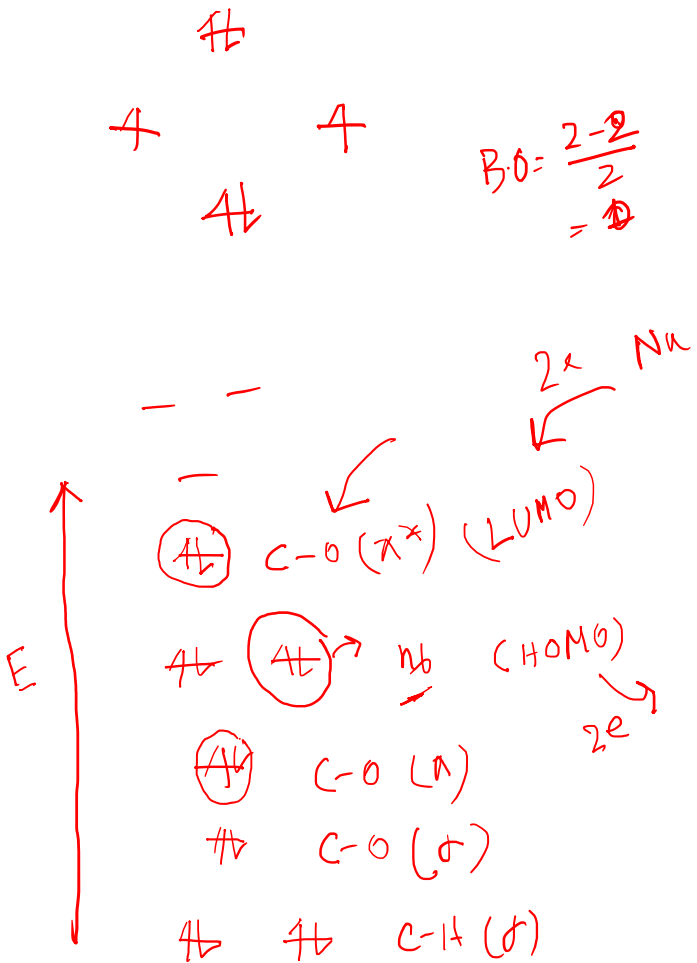 B.O = 2-2/2
= 0
2e Nu
C-O (π*) (LUMO)
E
nb (HOMO)
2e
C-O (π)
C-O (σ)
C-H (σ)